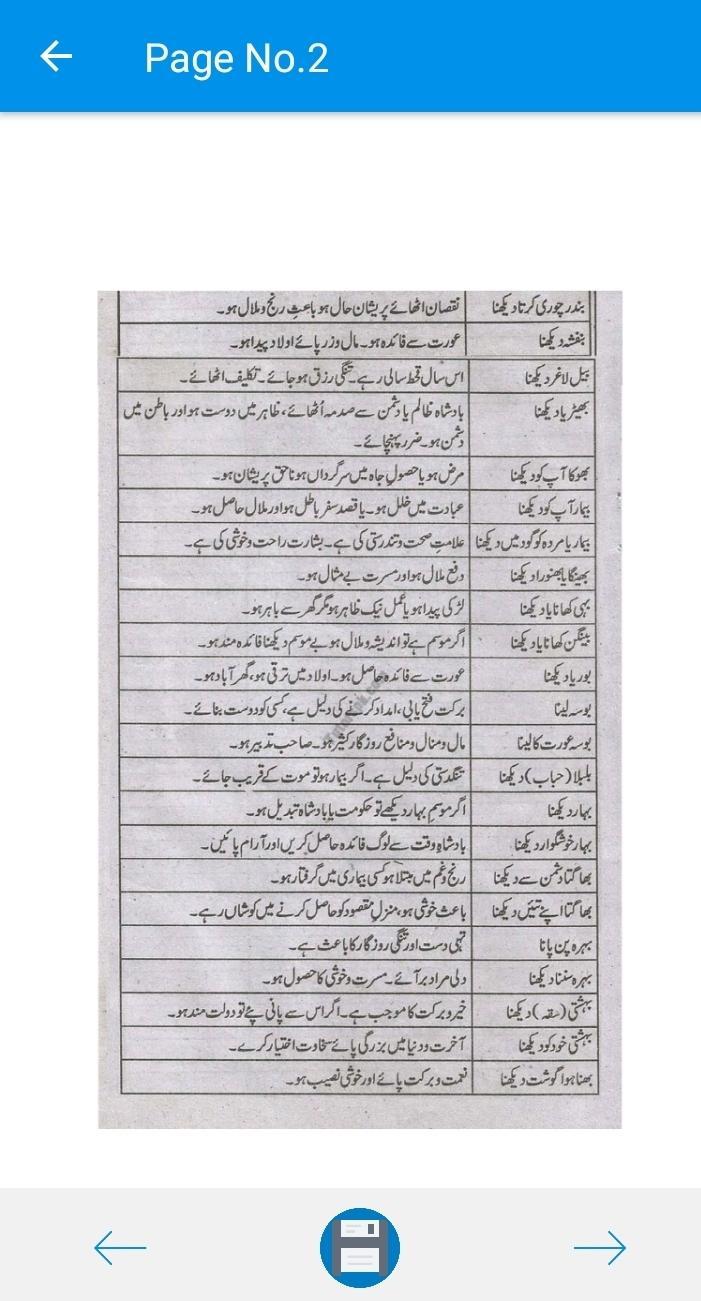 Page No.2
بندر چوری کرتا دیکھنا نقصان اٹھائے پریشان حال ہو باعثِ رنج و ملال ہو۔
بنفشہ دیکھنا عورت سے فائدہ ہو۔ مال وزر پائے اولاد پیدا ہو۔
بیل لاغر دیکھنا اس سال قحط سالی رہے۔ تنگی رزق ہو جائے۔ تکلیف اٹھائے۔
بھیڑیا دیکھنا بادشاہ ظالم یا دشمن سے صدمہ اُٹھائے، ظاہر میں دوست ہو اور باطن میں
دشمن ہو۔ ضرر پہنچائے۔
بھوکا آپ کو دیکھنا مرض ہو یا حصولِ جاہ میں سرگرداں ہو ناحق پریشان ہو۔
بیمار آپ کو دیکھنا عبادت میں خلل ہو۔ یا قصد سفر باطل ہو اور ملال حاصل ہو۔
بیمار یا مردہ کو گود میں دیکھنا علامتِ صحت و تندرستی کی ہے۔ بشارت راحت و خوشی کی ہے۔
بھینگا یا بھنورا دیکھنا دفع ملال ہو اور مسرت بے مثال ہو۔
بہی کھانا یا دیکھنا لڑکی پیدا ہو یا عمل نیک ظاہر ہو مگر گھر سے باہر ہو۔
بینگن کھانا یا دیکھنا اگر موسم ہے تو اندیشہ و ملال ہو بے موسم دیکھنا فائدہ مند ہو۔
بوریا دیکھنا عورت سے فائدہ حاصل ہو۔ اولاد میں ترقی ہو، گھر آباد ہو۔
بوسہ لینا برکت فتح یابی، امداد کرنے کی دلیل ہے، کسی کو دوست بنائے۔
بوسہ عورت کا لینا مال و منال و منافع روزگار کثیر ہو۔ صاحب تدبیر ہو۔
بلبلا (حباب) دیکھنا تنگدستی کی دلیل ہے۔ اگر بیمار ہو تو موت کے قریب جائے۔
بہار دیکھنا اگر موسمِ بہار دیکھے تو حکومت یا بادشاہ تبدیل ہو۔
بہار خوشگوار دیکھنا بادشاہِ وقت سے لوگ فائدہ حاصل کریں اور آرام پائیں۔
بھاگتا دشمن سے دیکھنا رنج و غم میں مبتلا ہو کسی بیماری میں گرفتار ہو۔
بھاگتا اپنے تئیں دیکھنا باعث خوشی ہو، منزلِ مقصود کو حاصل کرنے میں کوشاں رہے۔
بہرہ پن پانا تہی دست اور تنگی روزگار کا باعث ہے۔
بہرہ سننا دیکھنا دلی مراد بر آئے۔ مسرت و خوشی کا حصول ہو۔
بہشتی (سقہ) دیکھنا خیر و برکت کا موجب ہے۔ اگر اس سے پانی پئے تو دولت مند ہو۔
بہشتی خود کو دیکھنا آخرت و دنیا میں بزرگی پائے سخاوت اختیار کرے۔
بھنا ہوا گوشت دیکھنا نعمت و برکت پائے اور خوشی نصیب ہو۔